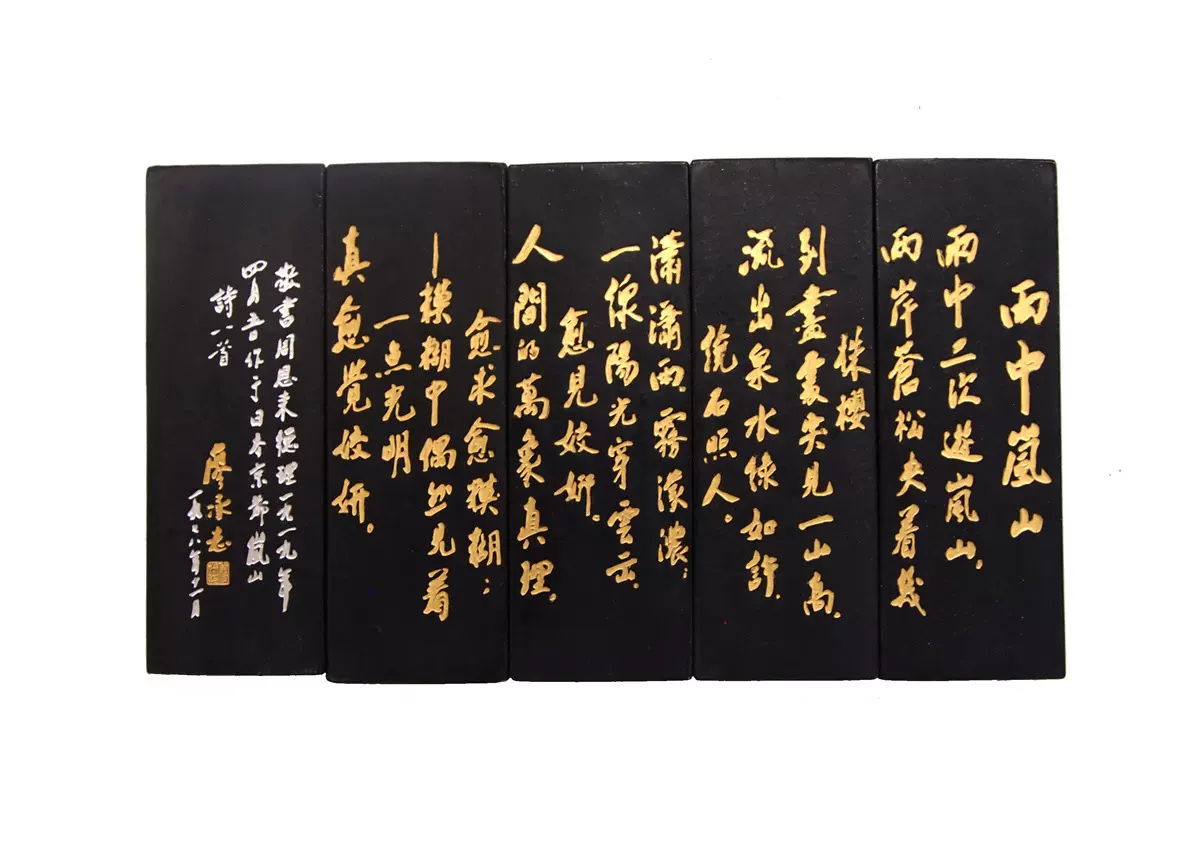 雨中嵐山
雨中二次遊嵐山,
兩岸蒼松夾着幾
株櫻
到盡處突見一山高,
流出泉水綠如許,
繞石照人。
瀟瀟雨,霧濛濃;
一線陽光穿雲出,
愈見姣妍。
人間的萬象真理,
愈求愈模糊;
—模糊中偶然見着
一点光明
真愈覺姣妍。
敬書周恩来總理一九一九年
四月五日作于日本京都嵐山
詩一首
廖承志
一九七八年十一月